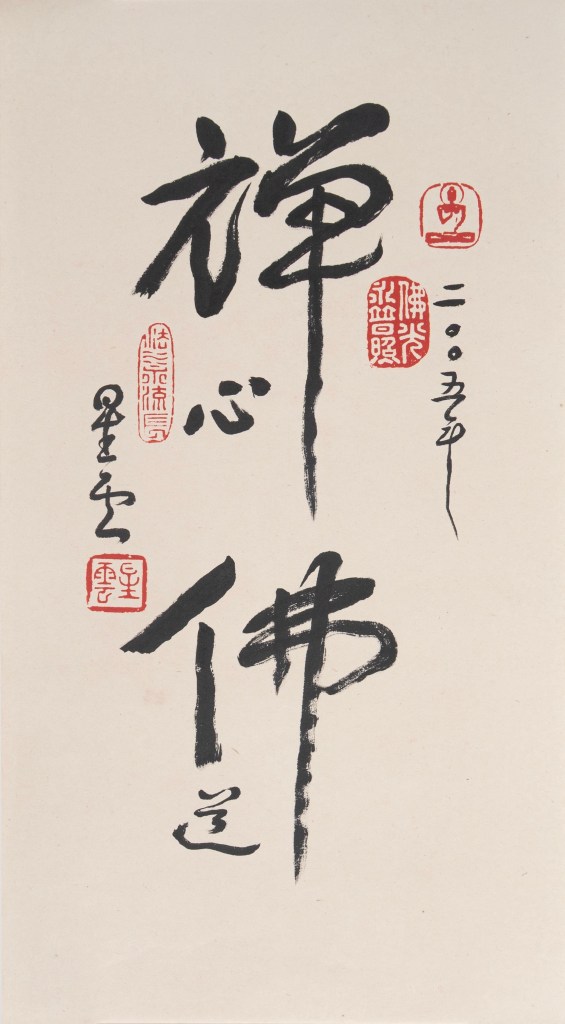 二〇〇五年
佛光普照
禪心
佛道
星雲
星雲